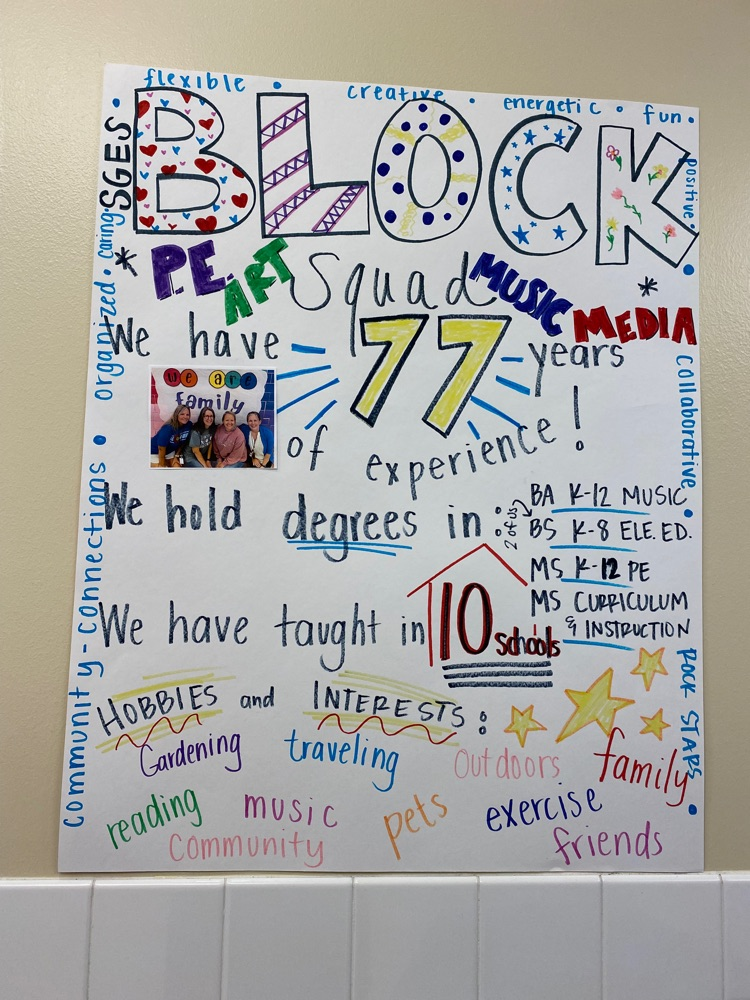 flexible • creative • energetic • fun •
SGES BLOCK
* P.E. ART Squad MUSIC MEDIA *
We have 77 years
we are
family
of experience!
We hold degrees in :
2 of us
BA K-12 MUSIC
BS K-8 ELE. ED.
MS K-12 PE
MS CURRICULUM
& INSTRUCTION
We have taught in 10 schools
HOBBIES and INTERESTS:
Gardening traveling Outdoors family
reading music pets exercise
community friends
positive •
collaborative •
ROCK STARS •
community-connections • organized • caring •